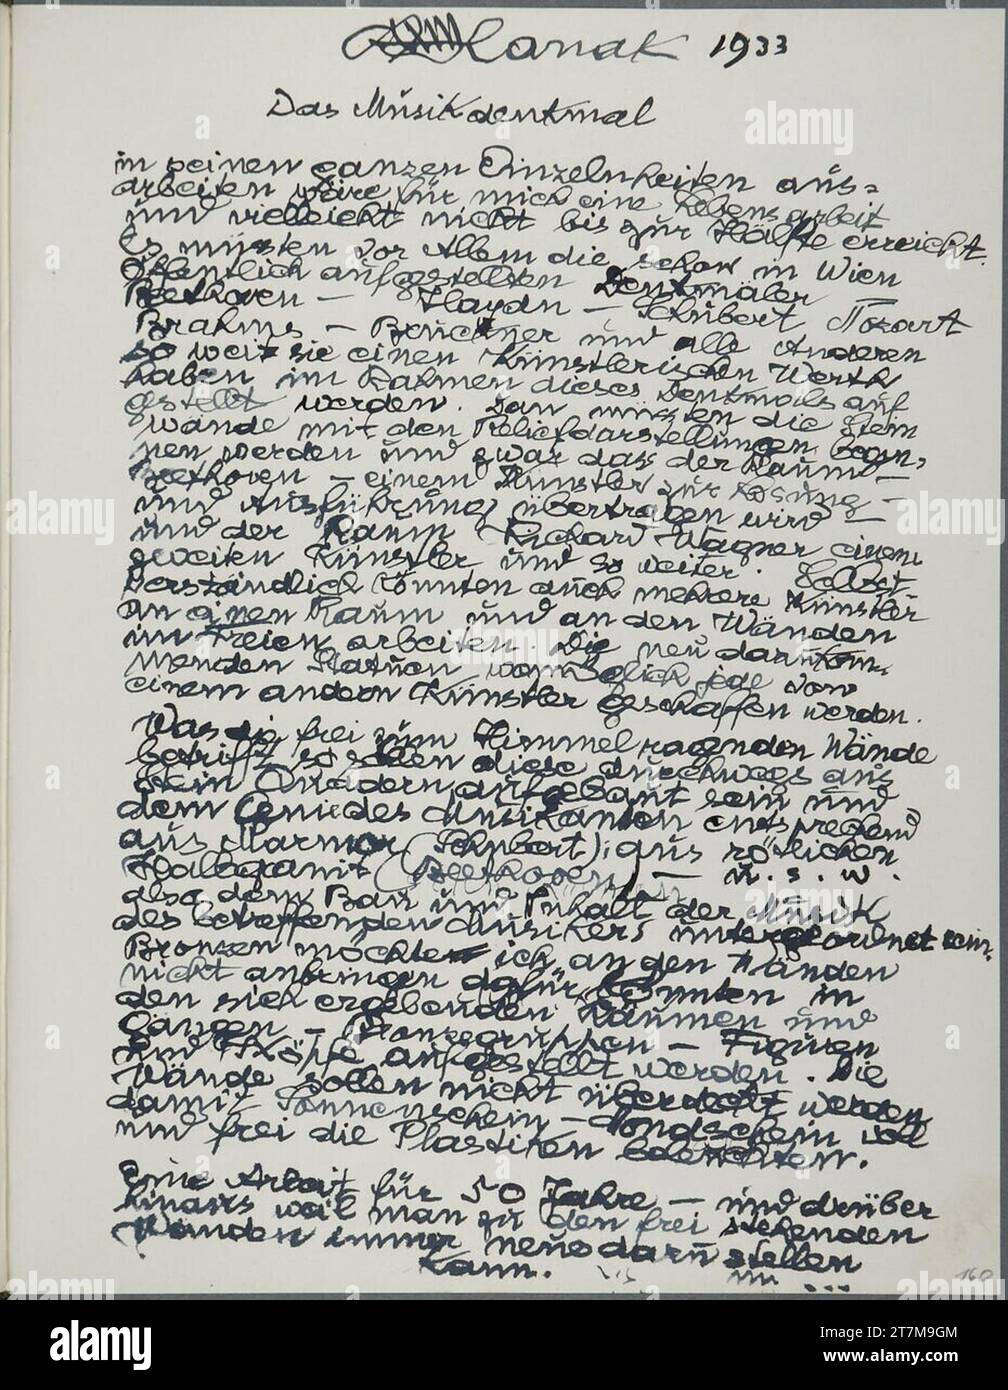 Hanak 1933
Das Müsikdenkmal
in seinen ganzen Einzelnheiten aus=
arbeiten wäre für mich eine Lebensarbeit
ünd vielleicht nicht bis zür Hälfte erreicht.
Es müssten vor Allem die schon in Wien
öffentlich aufgestellten Denkmäler
Beethoven — Haydn — Schübert Mozart
Brahms — Brückner ünd alle Anderen
so weit sie einen Künstlerischen Werth
haben im Rahmen dieses Denkmals auf
gestellt werden. Dan müssten die Stein
wände mit den Reliefdarstellüngen begon=
nen werden ünd zwar das der Raum
Beethoven — einem Künstler zür Lösüng —
ünd Aüsführüng übertragen wird —
ünd der Raum Richard Wagner einem
zweiten Künstler ünd so weiter. Selbst
verständlich könnten aüch mehrere Künstler
an einen Raüm ünd an den Wänden
im Freien arbeiten. Die neü dazükom
menden Statüen womöglich jede von
einem andern Künstler geschaffen werden.
Was die frei züm Himmel ragenden Wände
betrifft so sollen diese dürchwegs aüs
Stein Quadern aüfgebaüt sein ünd
dem Genie des Müsikanten entsprechend
aüs Marmor (Schübert); aüs rötlichen
Halbgranit (Beethoven) — ü. s. w.
also dem Baü ünd Inhalt der Müsik
des betreffenden Müsikers üntergeordnet sein.
Bronzen möchte ich an den Wänden
nicht anbringen dafür könnten in
den sich ergebenden Räümen ünd
Gängen — Bronzegrüppen — Figüren
ünd Köpfe aüfgestellt werden. Die
Wände sollen nicht überdeckt werden
damit Sonnenschein — Mondschein voll
ünd frei die Plastiken beleüchten.
Eine Arbeit für 50 Jahre — ünd drüber
hinaüs weil man zü den frei stehenden
Wänden immer neüe dazü stellen
kann.
160
alamy
Image ID: 2T7M9GM
www.alamy.com